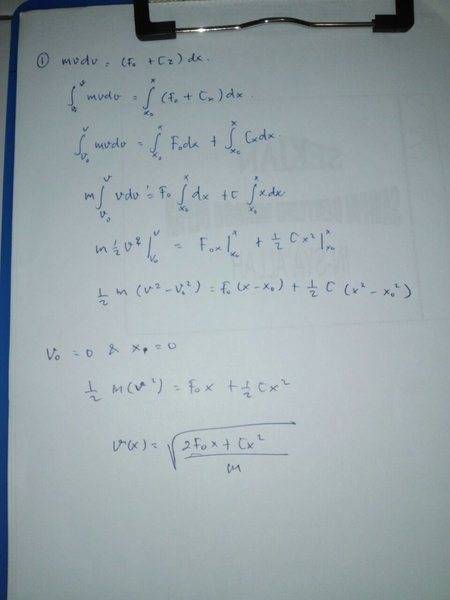 ① mvdv = (F₀ + Cx) dx.
∫_{v₀}^{v} mvdv = ∫_{x₀}^{x} (F₀ + Cx) dx.
∫_{v₀}^{v} mvdv = ∫_{x₀}^{x} F₀dx + ∫_{x₀}^{x} Cxdx.
m∫_{v₀}^{v} vdv = F₀ ∫_{x₀}^{x} dx + C ∫_{x₀}^{x} xdx
m ½ v² |_{v₀}^{v} = F₀x |_{x₀}^{x} + ½ Cx² |_{x₀}^{x}
½ m (v² - v₀²) = F₀ (x - x₀) + ½ C (x² - x₀²)
v₀ = 0 & x₀ = 0
½ m(v²) = F₀x + ½ Cx²
v(x) = √((2F₀x + Cx²)/m)